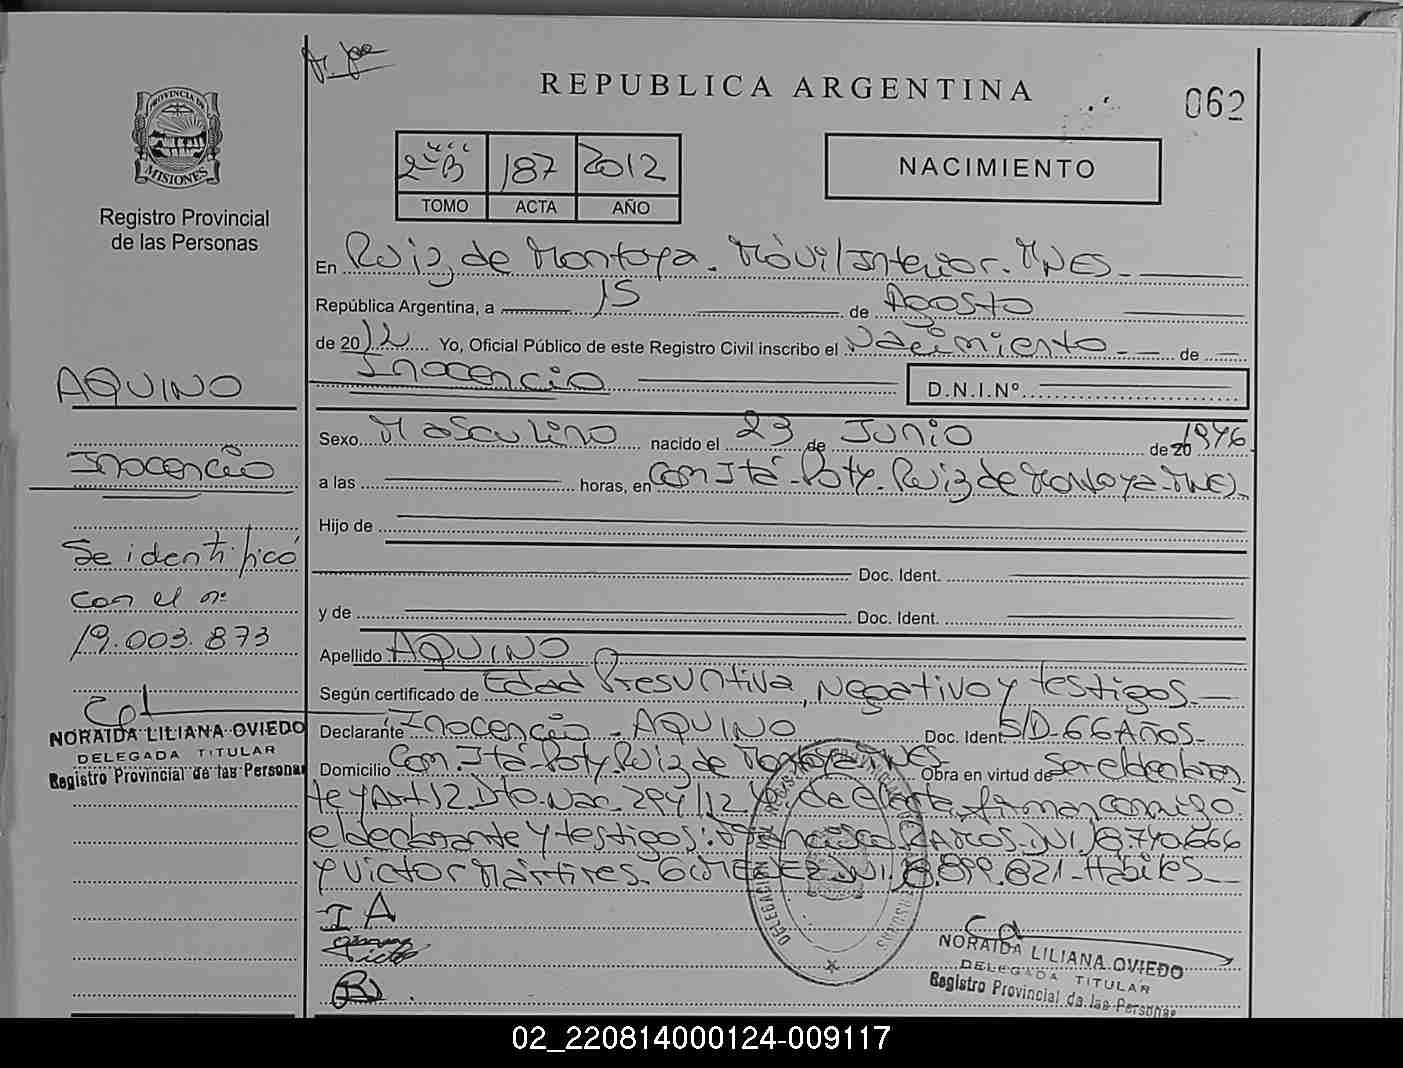 REPUBLICA ARGENTINA
062
PROVINCIA DE
MISIONES
Registro Provincial
de las Personas
187 2012
TOMO ACTA AÑO
NACIMIENTO
En Ruiz de Montoya. Móvil Interior. MNES.
República Argentina, a 15 de Agosto
de 2012 Yo, Oficial Público de este Registro Civil inscribo el Nacimiento de
Inocencio D.N.I.Nº
Sexo Masculino nacido el 23 de Junio de 20 1946
a las horas, en Com Itá Poty. Ruiz de Montoya. MNES.
Hijo de
Doc. Ident.
y de Doc. Ident.
Apellido AQUINO
Según certificado de Edad Presuntiva, Negativo y testigos.
Declarante Inocencio AQUINO Doc. Ident. S/D. 66 Años.
Domicilio Com. Itá Poty. Ruiz de Montoya. MNES. Obra en virtud de ser el declaran
te y Art 12. Dto. Nac. 294/12 firman conmigo
el declarante y testigos: Francisco RAMOS. DNI. 18.740.666
y Victor Mártires GIMENEZ DNI. 18.899.821. Hábiles.
AQUINO
Inocencio
Se identificó
con el nº
19.003.873
NORAIDA LILIANA OVIEDO
DELEGADA TITULAR
Registro Provincial de las Personas
I A
NORAIDA LILIANA OVIEDO
DELEGADA TITULAR
Registro Provincial de las Personas
02_220814000124-009117